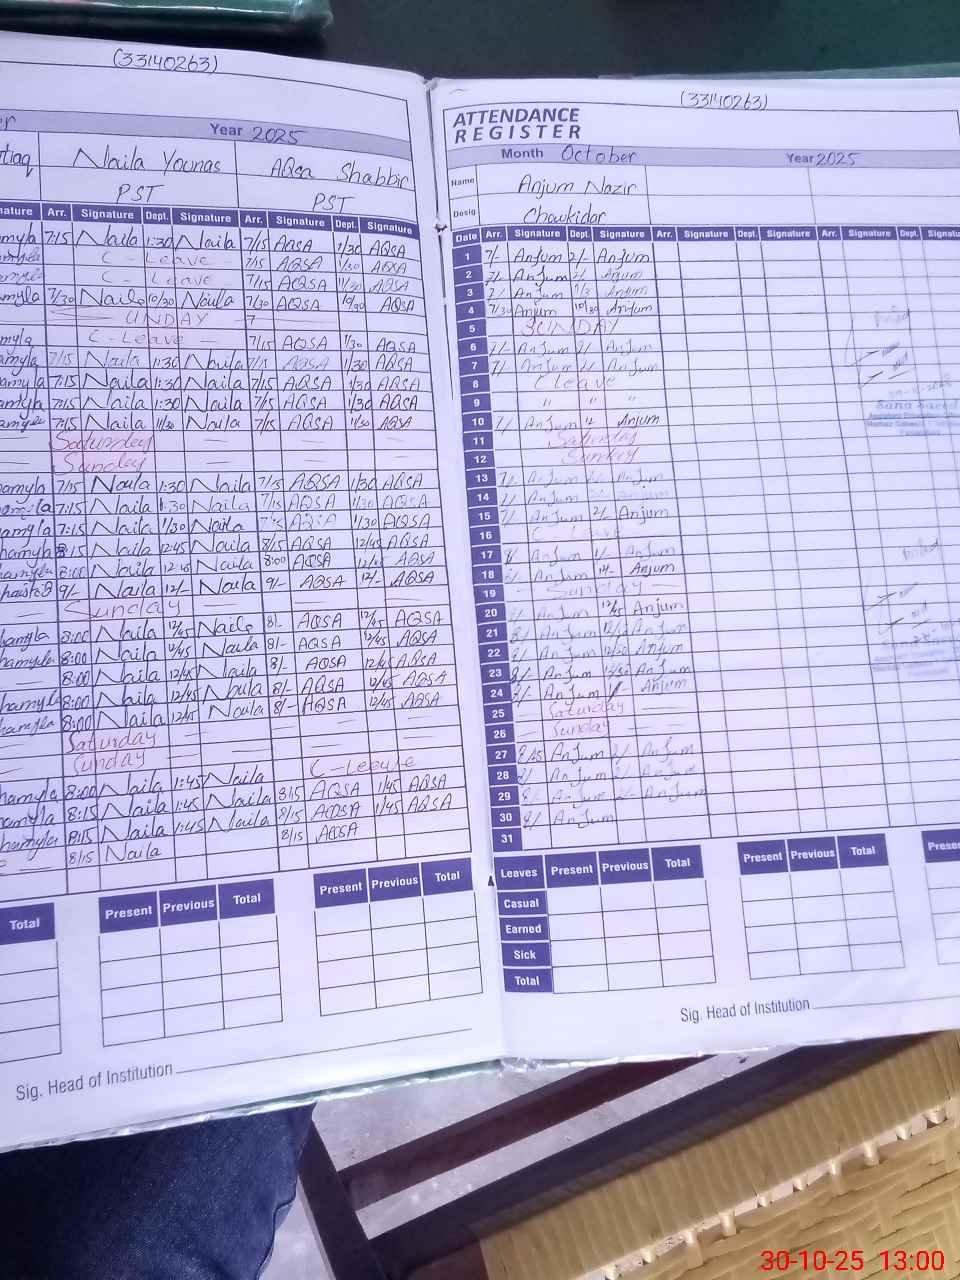 (33140263)
Year 2025
Naila Younas AQsa Shabbir
PST PST
Arr. Signature Dept. Signature Arr. Signature Dept. Signature
7:15 Naila 1:30 Naila 7/15 AQSA 1/30 AQSA
C - Leave - 7/15 AQSA 1/30 AQSA
C - Leave - 7/15 AQSA 1/30 AQSA
7/30 Naila 10/30 Naila 7/30 AQSA AQSA
UNDAY
C - Leave - 7/15 AQSA 1/30 AQSA
7/15 Naila 1:30 Naila 7/15 AQSA 1/30 AQSA
7:15 Naila 1:30 Naila 7/15 AQSA 1/30 AQSA
7:15 Naila 1:30 Naila 7/15 AQSA 1/30 AQSA
7:15 Naila 1/30 Naila 7/15 AQSA 1/30 AQSA
Saturday
Sunday
7/15 Naila 1:30 Naila 7/15 AQSA 1/30 AQSA
7:15 Naila 1:30 Naila 7/15 AQSA 1/30 AQSA
7:15 Naila 1/30 Naila AQSA 1/30 AQSA
8:15 Naila 12:45 Naila 8/15 AQSA 12/45 AQSA
8:00 Naila Naila 8:00 AQSA AQSA
9/- Naila 12/- Naila 9/- AQSA 12/- AQSA
Sunday
8:00 Naila 12/45 Naila 8/- AQSA 12/45 AQSA
8:00 Naila 12/45 Naila 8/- AQSA 12/45 AQSA
8:00 Naila 12/45 Naila 8/- AQSA 12/45 AQSA
8:00 Naila 12/45 Naila 8/- AQSA 12/45 AQSA
8:00 Naila 12/45 Naila 8/- AQSA 12/45 AQSA
Saturday
Sunday
8:00 Naila 1:45 Naila C - Leave
8:15 Naila 1:45 Naila 8/15 AQSA 1/45 AQSA
8:15 Naila 1:45 Naila 8/15 AQSA 1/45 AQSA
8/15 Naila 8/15 AQSA
Total Present Previous Total Present Previous Total
Sig. Head of Institution
(33140263)
ATTENDANCE
REGISTER
Month October Year 2025
Name Anjum Nazir
Desig Chowkidar
Date Arr. Signature Dept. Signature Arr. Signature Dept. Signature Arr. Signature Dept.
1 7/- Anjum 2/- Anjum
2 7/- Anjum 2/- Anjum
3 Anjum Anjum
4 7/30 Anjum 10/30 Anjum
5 SUNDAY
6 7/- Anjum 2/- Anjum
7 7/- Anjum 2/- Anjum
8 C Leave
9 " " "
10 7/- Anjum Anjum
11 Saturday
12 Sunday
13 Anjum Anjum
14 Anjum Anjum
15 Anjum 2/- Anjum
16 C - Leave
17 8/- Anjum Anjum
18 Anjum Anjum
19 Sunday
20 Anjum 12/45 Anjum
21 8/- Anjum Anjum
22 8/- Anjum Anjum
23 8/- Anjum Anjum
24 Anjum Anjum
25 Saturday
26 Sunday
27 Anjum 2/- Anjum
28 Anjum Anjum
29 8/- Anjum 2/- Anjum
30 8/- Anjum
31
Leaves Present Previous Total Present Previous Total
Casual
Earned
Sick
Total
Sig. Head of Institution
30-10-25 13:00